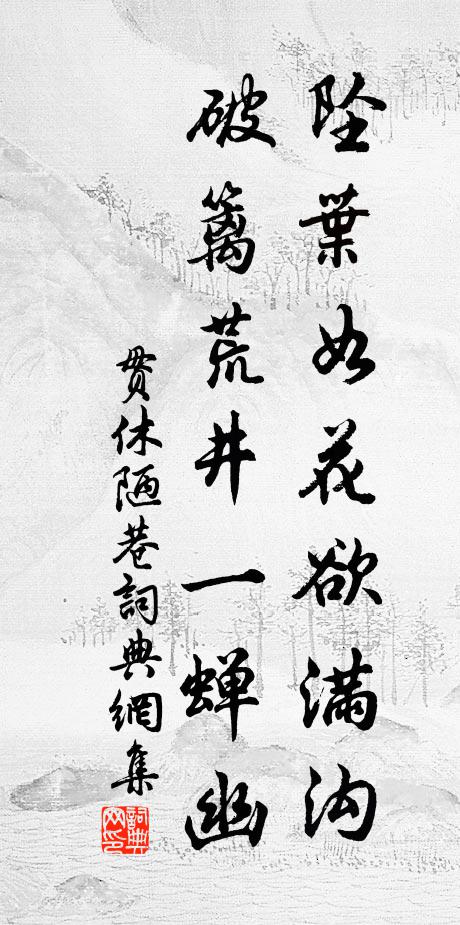 坠葉如花欲满沟
破篱荒井一蝉幽
贯休陋巷詞典網集
詞典网印